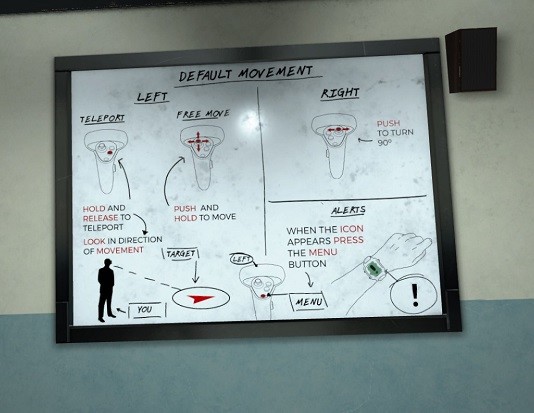 DEFAULT MOVEMENT
LEFT
TELEPORT
FREE MOVE
HOLD AND
RELEASE TO
TELEPORT
LOOK IN DIRECTION
OF MOVEMENT
PUSH AND
HOLD TO MOVE
TARGET
YOU
RIGHT
PUSH
TO TURN
90°
ALERTS
WHEN THE ICON
APPEARS PRESS
THE MENU
BUTTON
LEFT
MENU
!